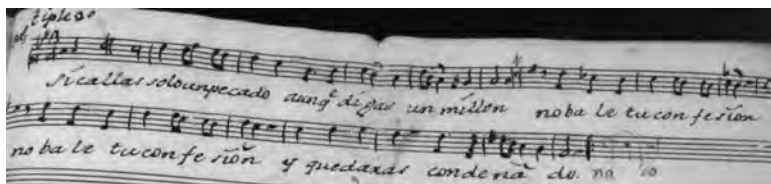 tiples
si callas solo un pecado aunq^e digas un millon no ba le tu con fesion
no ba le tu con fe sion y quedaras condenã do. na